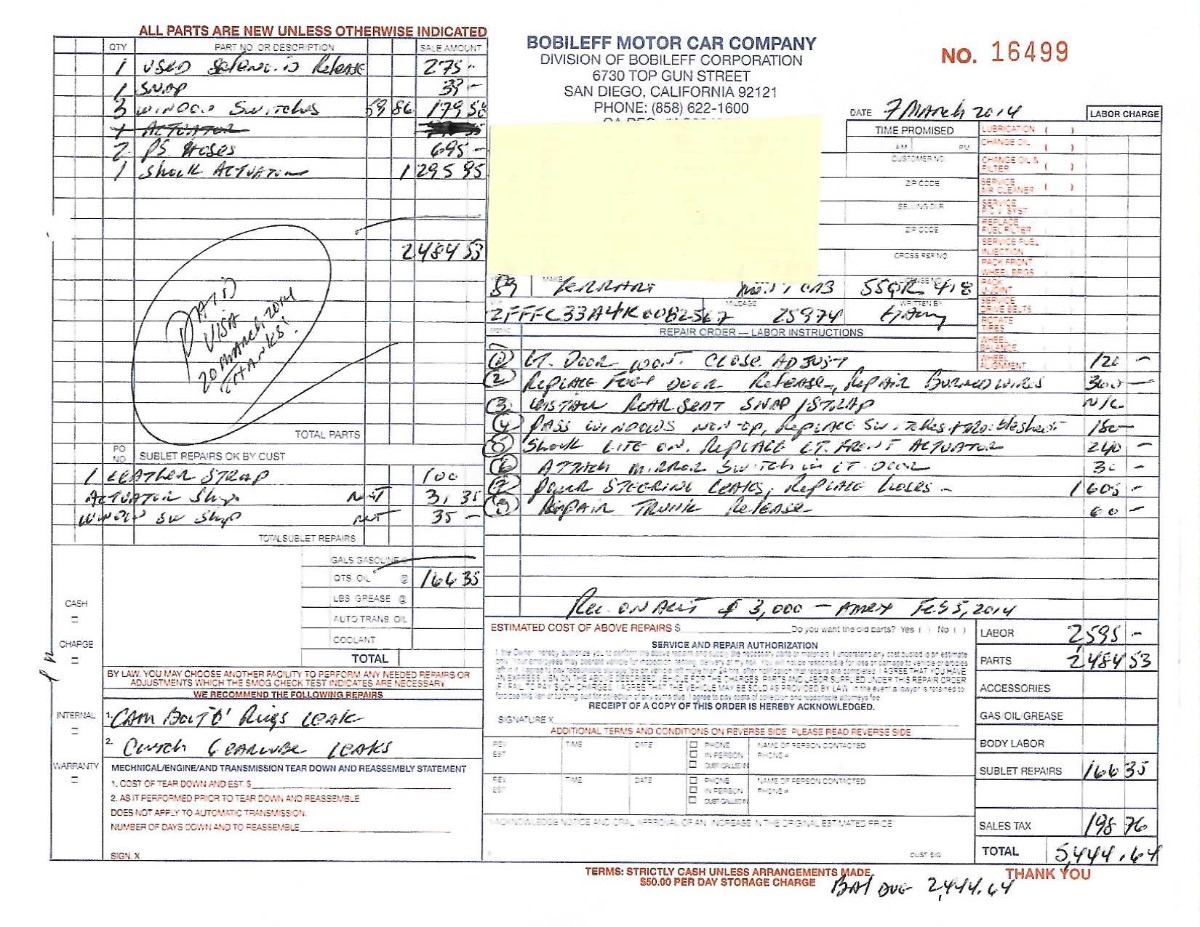 ALL PARTS ARE NEW UNLESS OTHERWISE INDICATED
QTY PART NO. OR DESCRIPTION SALE AMOUNT
1 USED Release 275 -
1 SNAP 39 -
3 WINDOW SWITCHES 59 86 179 58
1 ACTUATOR
2 PS HOSES 695 -
1 SHOCK ACTUATOR 1295 95
2484 53
PAID
VISA
20 MARCH, 2014
THANKS!
TOTAL PARTS
PO NO. SUBLET REPAIRS OK BY CUST
1 LEATHER STRAP 100
ACTUATOR Ship 31 35
WINDOW SW Ship 35 -
TOTAL SUBLET REPAIRS
GALS GASOLINE @
QTS OIL @ 166 35
LBS GREASE @
AUTO TRANS. OIL
COOLANT
TOTAL
CASH
CHARGE
INTERNAL
WARRANTY
BY LAW, YOU MAY CHOOSE ANOTHER FACILITY TO PERFORM ANY NEEDED REPAIRS OR
ADJUSTMENTS WHICH THE SMOG CHECK TEST INDICATES ARE NECESSARY
WE RECOMMEND THE FOLLOWING REPAIRS
1. CAM BOLT 'O' Rings LEAK
2. Clutch LEAKS
MECHNICAL/ENGINE/AND TRANSMISSION TEAR DOWN AND REASSEMBLY STATEMENT
1. COST OF TEAR DOWN AND EST. $
2. AS IT PERFORMED PRIOR TO TEAR DOWN AND REASSEMBLE
DOES NOT APPLY TO AUTOMATIC TRANSMISSION.
NUMBER OF DAYS DOWN AND TO REASSEMBLE
SIGN. X
BOBILEFF MOTOR CAR COMPANY
DIVISION OF BOBILEFF CORPORATION
6730 TOP GUN STREET
SAN DIEGO, CALIFORNIA 92121
PHONE: (858) 622-1600
NO. 16499
DATE 7 March 2014
LABOR CHARGE
TIME PROMISED
AM PM
CUSTOMER NO.
ZIP CODE
SELLING DLR
ZIP CODE
CROSS REF NO.
LUBRICATION ( )
CHANGE OIL ( )
CHANGE OIL & FILTER ( )
SERVICE AIR CLEANER ( )
SERVICE
REPLACE FUEL FILTER
SERVICE FUEL INJECTION
PACK FRONT WHEEL BRGS
PACK
SERVICE DRIVE BELTS
ROTATE TIRES
WHEEL BALANCE
WHEEL ALIGNMENT
MAKE
89 FERRARI
MILEAGE WRITTEN BY
25974
REPAIR ORDER — LABOR INSTRUCTIONS
① LT. DOOR WONT CLOSE, ADJUST 120 -
② REPLACE DOOR Release, REPAIR BURNED WIRES 300 -
③ INSTALL REAR SEAT SNAP/STRAP N/C
④ PASS WINDOWS , REPLACE SWITCHES + troubleshoot
⑤ SHOCK LITE ON. REPLACE LT. FRONT ACTUATOR 240 -
⑥ ATTACH MIRROR SWITCH in LT. DOOR 30 -
⑦ POWER STEERING LEAKS, REPLACE HOSES - 1605 -
⑧ REPAIR TRUNK RELEASE 60 -
Rec. ON ACCT $ 3,000 - AMEX FEB 5, 2014
ESTIMATED COST OF ABOVE REPAIRS $ Do you want the old parts? Yes ( ) No ( )
SERVICE AND REPAIR AUTHORIZATION
RECEIPT OF A COPY OF THIS ORDER IS HEREBY ACKNOWLEDGED.
SIGNATURE X
ADDITIONAL TERMS AND CONDITIONS ON REVERSE SIDE. PLEASE READ REVERSE SIDE
REV. EST TIME DATE PHONE IN PERSON CUST CALLED IN NAME OF PERSON CONTACTED PHONE #
REV. EST TIME DATE PHONE IN PERSON CUST CALLED IN NAME OF PERSON CONTACTED PHONE #
I ACKNOWLEDGE NOTICE AND ORAL APPROVAL OF AN INCREASE IN THE ORIGINAL ESTIMATED PRICE
X CUST SIG
LABOR 2595 -
PARTS 2484 53
ACCESSORIES
GAS OIL/GREASE
BODY LABOR
SUBLET REPAIRS 166 35
SALES TAX 198 76
TOTAL 5,444.64
TERMS: STRICTLY CASH UNLESS ARRANGEMENTS MADE.
$50.00 PER DAY STORAGE CHARGE
THANK YOU
BAL DUE 2,444.64